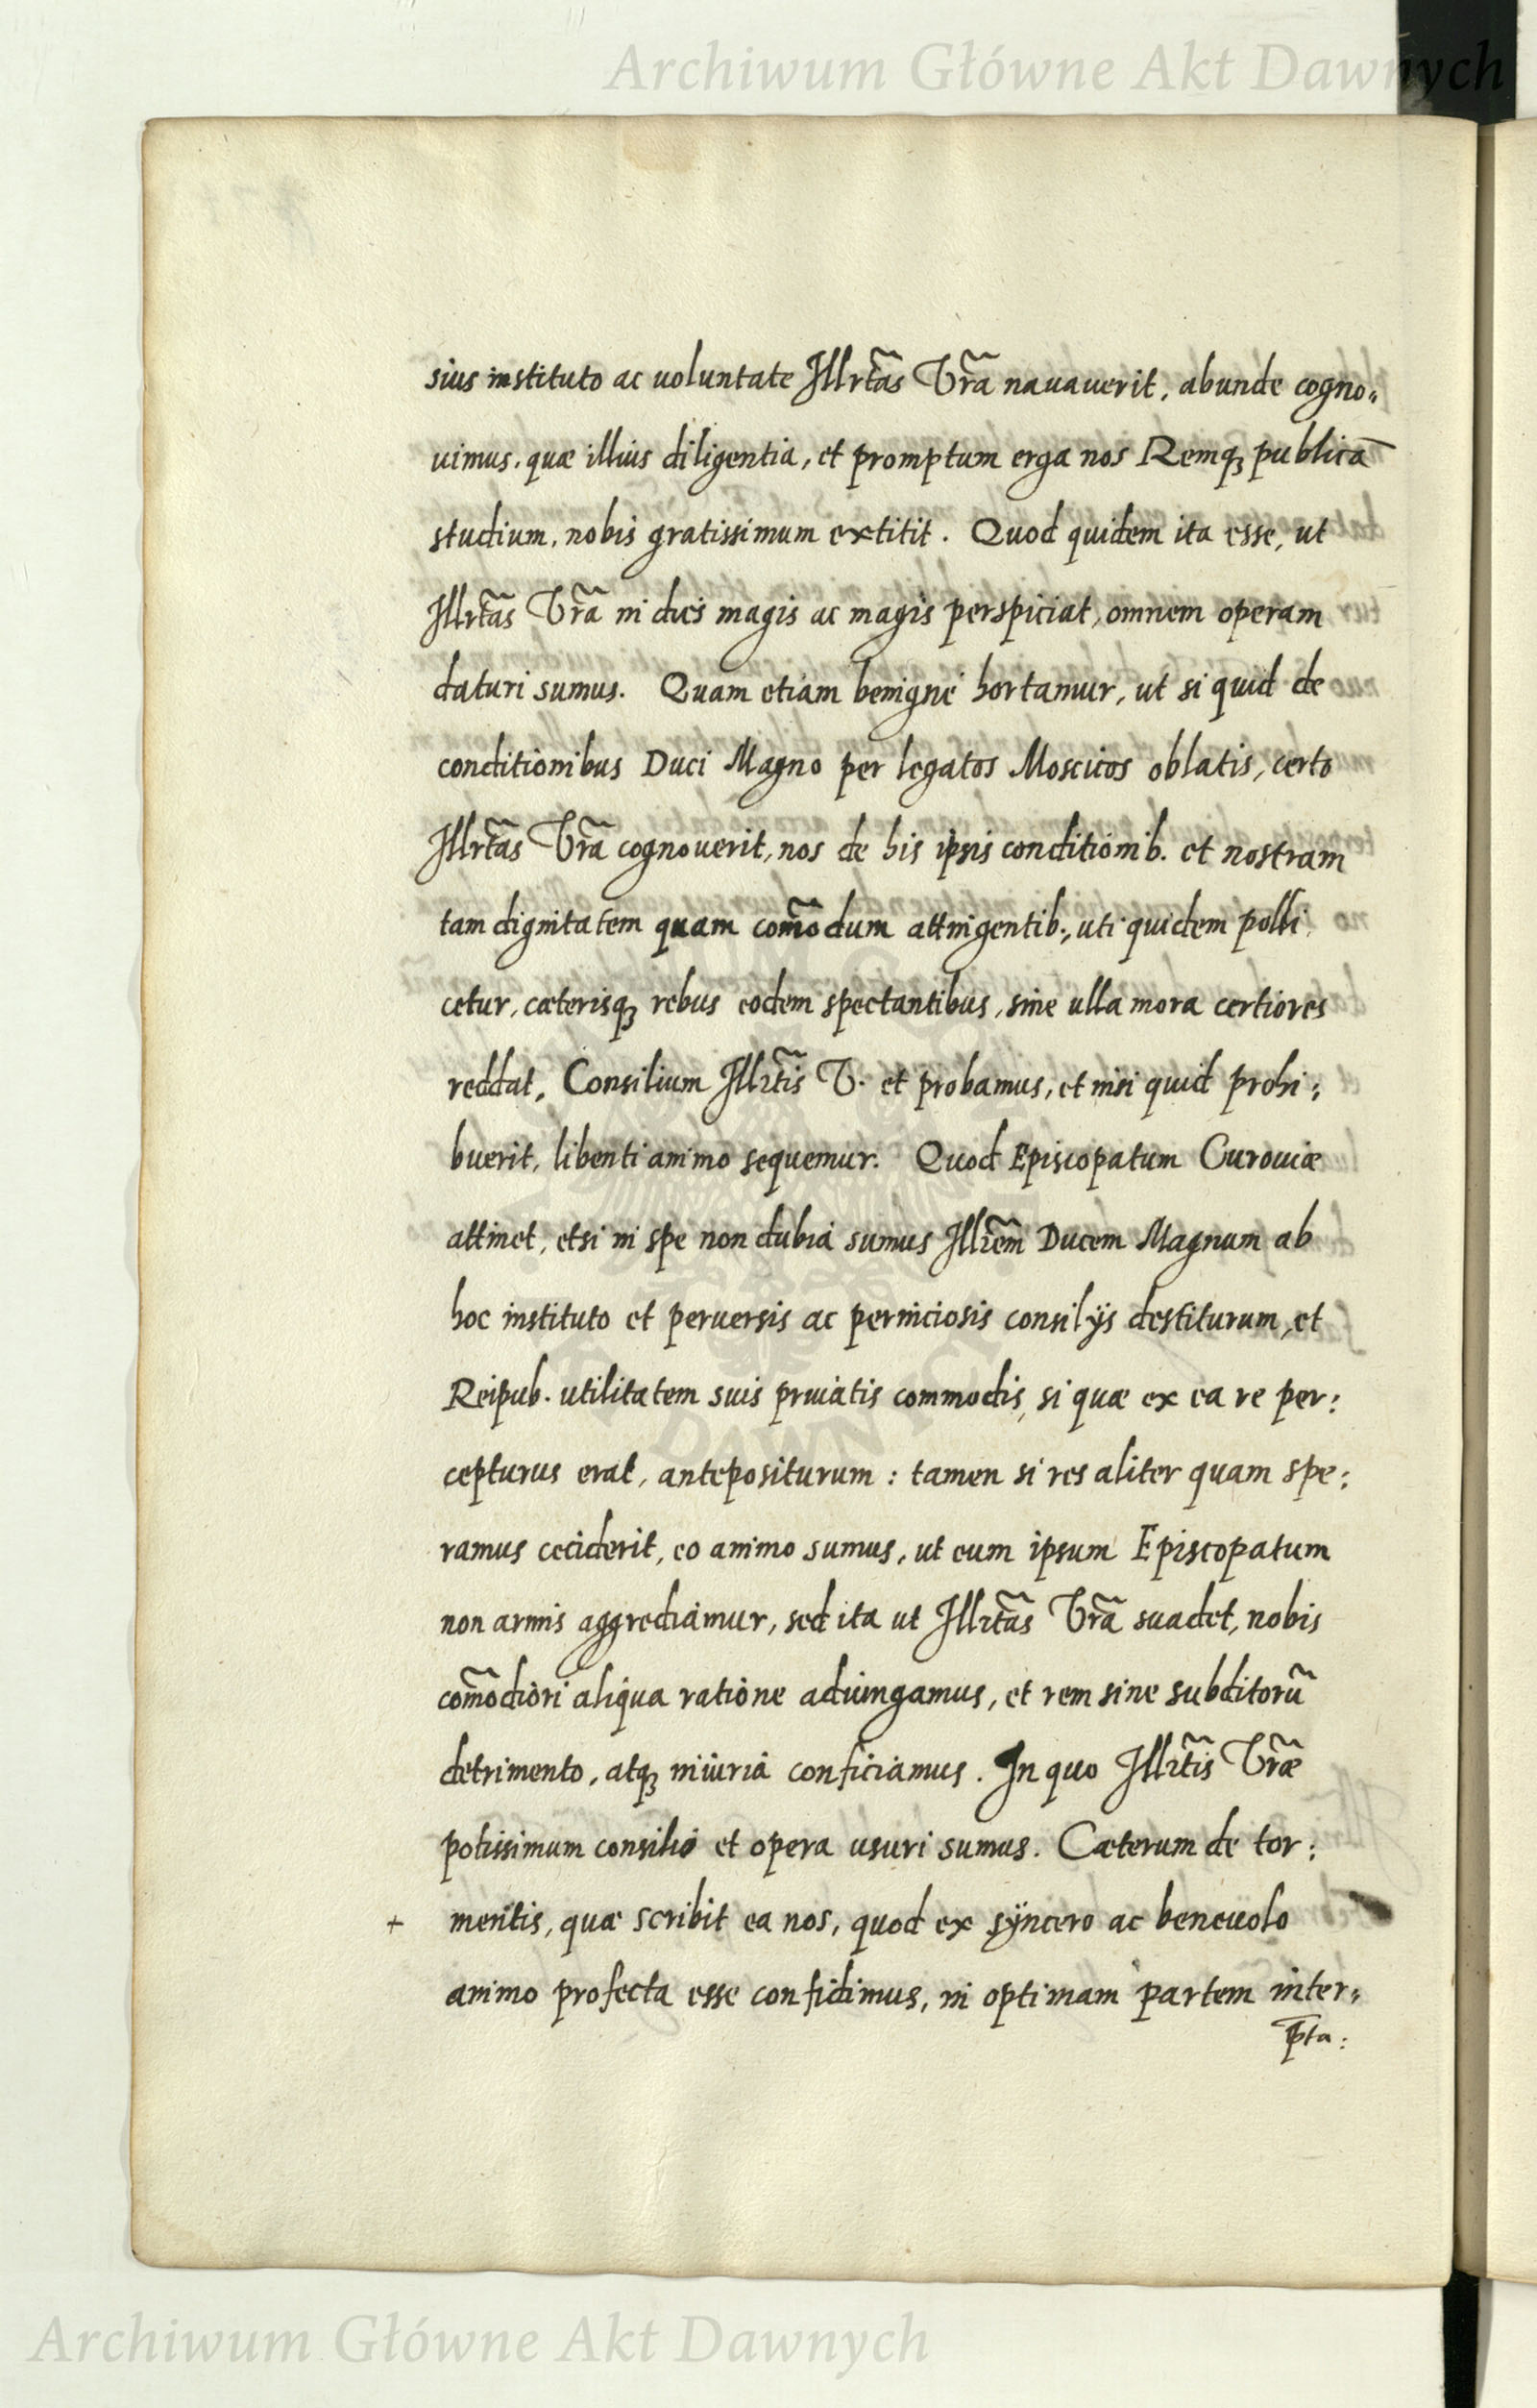 Archiwum Główne Akt Dawnych
sius instituto ac uoluntate Illrtãs Vrã nauauerit, abunde cogno„
uimus. quæ illius diligentia, et promptum erga nos Remqꝫ publicā
studium, nobis gratissimum extitit. Quod quidem ita esse, ut
Illrtãs Vrã in dies magis ac magis perspiciat, omnem operam
daturi sumus. Quam etiam benignè hortamur, ut si quid de
conditionibus Duci Magno per legatos Moscicos oblatis, certo
Illrtãs Vrã cognouerit, nos de his ipsis conditionib. et nostram
tam dignitatem quam com̃odum attingentib., uti quidem polli
cetur, cæterisqꝫ rebus eodem spectantibus, sine ulla mora certiores
reddat, Consilium Illrtĩs V. et probamus, et nisi quid prohi:
buerit, libenti animo sequemur. Quod Episcopatum Curoniæ
attinet, etsi in spe non dubia sumus Illrem̃ Ducem Magnum ab
hoc instituto et peruersis ac perniciosis consilÿs destiturum, et
Reipub. utilitatem suis priuatis commodis, si quæ ex ea re per:
cepturus erat, antepositurum : tamen si res aliter quam spe:
ramus ceciderit, eo animo sumus, ut eum ipsum Episcopatum
non armis aggrediamur, sed ita ut Illrtãs Vrã suadet, nobis
com̃odiori aliqua ratione adiungamus, et rem sine subditorũ
detrimento, atqꝫ iniuria conficiamus. In quo Illrtĩs Vræ̃
potissimum consilio et opera usuri sumus. Cæterum de tor:
+ mentis, quæ scribit ea nos, quod ex sÿncero ac beneuolo
animo profecta esse confidimus, in optimam partem inter„
p̄ta:
Archiwum Główne Akt Dawnych